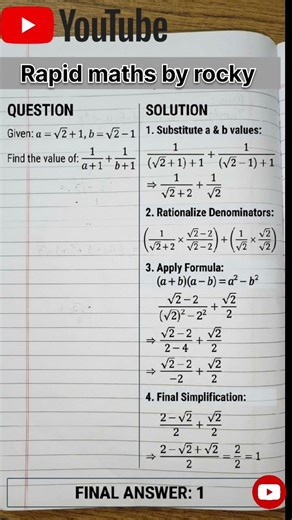 YouTube
Rapid maths by rocky
QUESTION
Given: a = √2 + 1, b = √2 − 1
Find the value of: 1/(a+1) + 1/(b+1)
SOLUTION
1. Substitute a & b values:
1/((√2+1)+1) + 1/((√2−1)+1)
⇒ 1/(√2+2) + 1/√2
2. Rationalize Denominators:
(1/(√2+2) × (√2−2)/(√2−2)) + (1/√2 × √2/√2)
3. Apply Formula:
(a+b)(a−b) = a² − b²
(√2−2)/((√2)²−2²) + √2/2
⇒ (√2−2)/(2−4) + √2/2
⇒ (√2−2)/−2 + √2/2
4. Final Simplification:
(2−√2)/2 + √2/2
⇒ (2−√2+√2)/2 = 2/2 = 1
FINAL ANSWER: 1